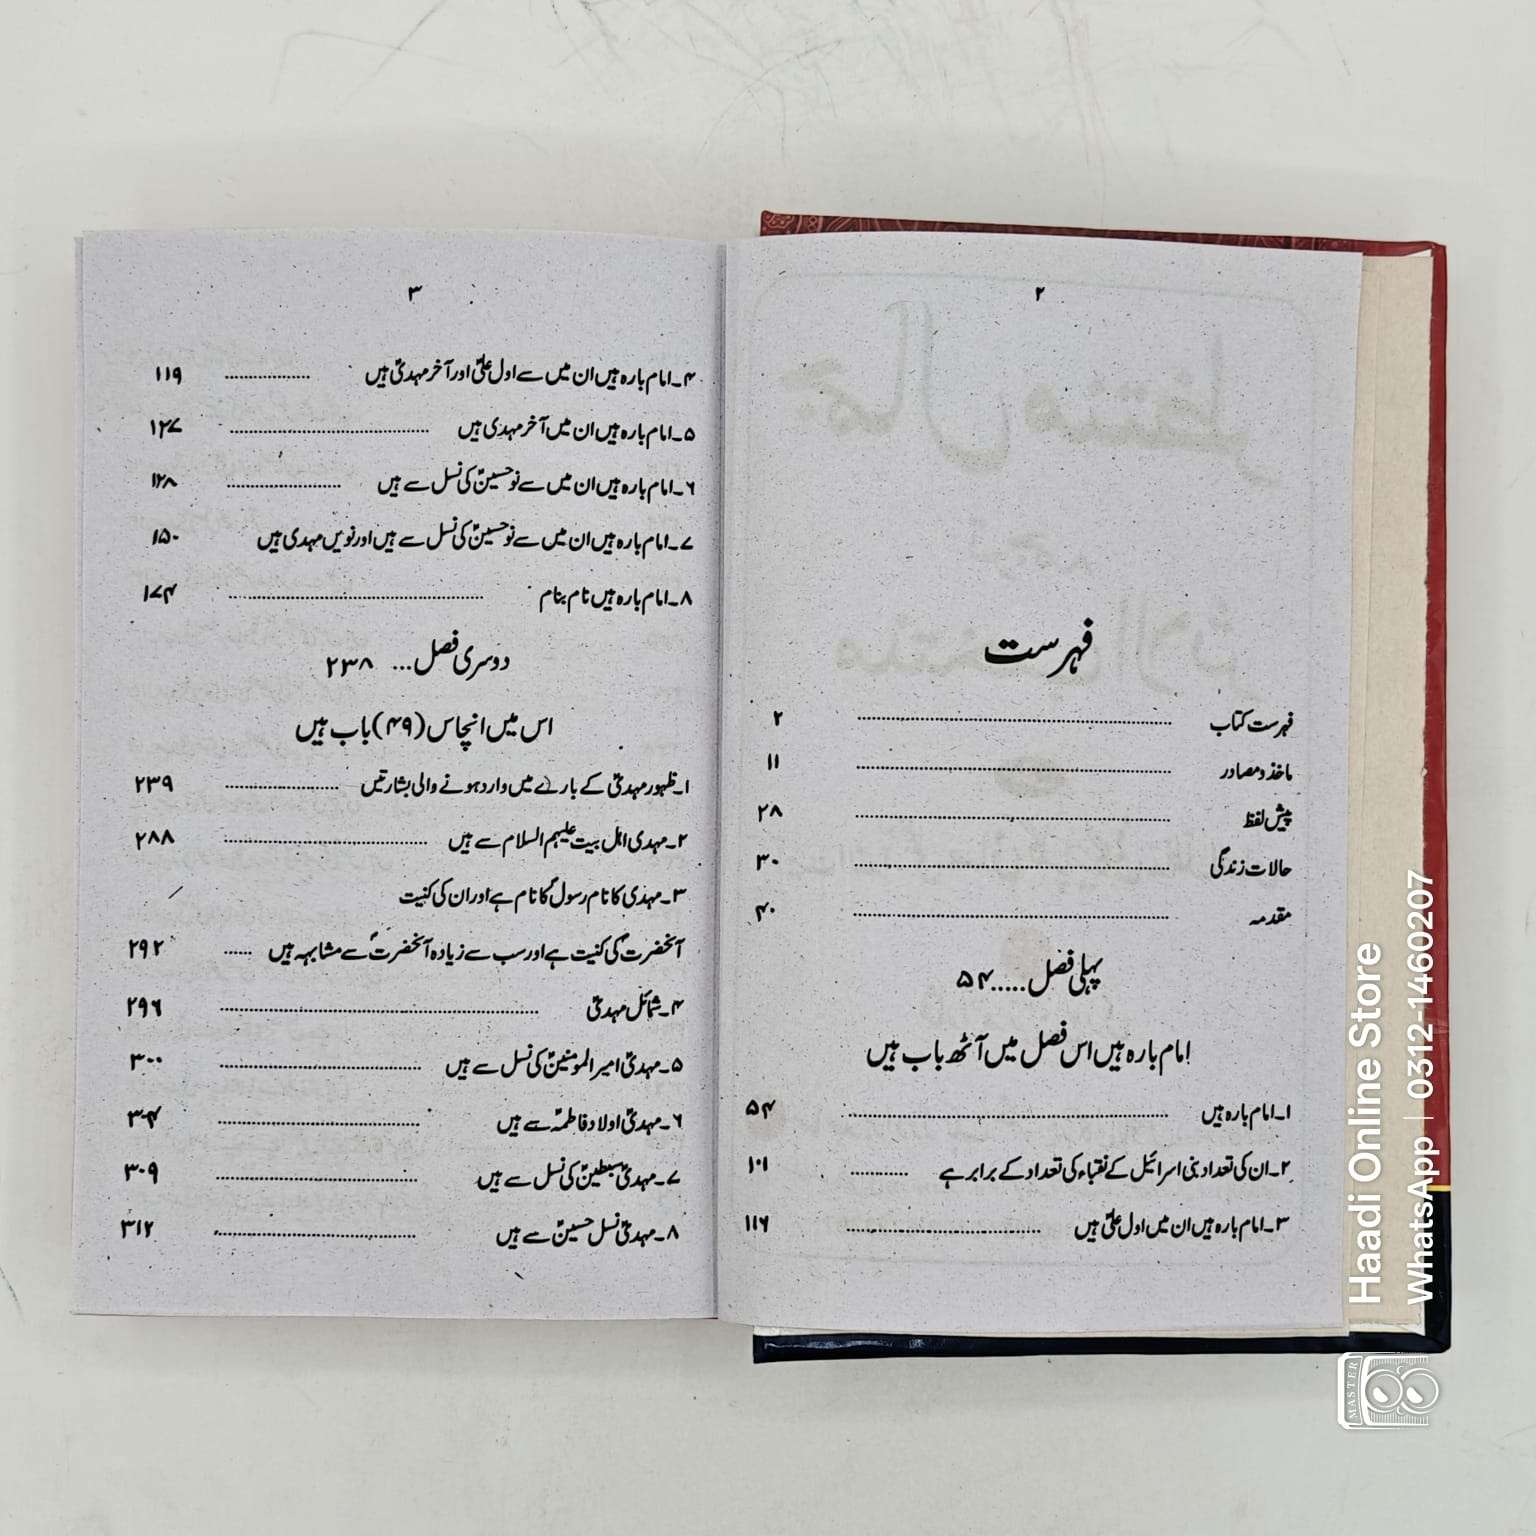 ۲
فہرست
فہرست کتاب ۲
ماخذ و مصادر ۱۱
پیش لفظ ۲۸
حالات زندگی ۳۰
مقدمہ ۴۰
پہلی فصل ..... ۵۴
امام بارہ ہیں اس فصل میں آٹھ باب ہیں
۱۔ امام بارہ ہیں ۵۴
۲۔ ان کی تعداد بنی اسرائیل کے نقباء کی تعداد کے برابر ہے ۱۰۱
۳۔ امام بارہ ہیں ان میں اول علیؑ ہیں ۱۱۶
۳
۴۔ امام بارہ ہیں ان میں سے اول علیؑ اور آخر مہدیؑ ہیں ۱۱۹
۵۔ امام بارہ ہیں ان میں آخر مہدی ہیں ۱۲۷
۶۔ امام بارہ ہیں ان میں سے نو حسینؑ کی نسل سے ہیں ۱۲۸
۷۔ امام بارہ ہیں ان میں سے نو حسینؑ کی نسل سے ہیں اور نویں مہدی ہیں ۱۵۰
۸۔ امام بارہ ہیں نام بنام ۱۷۴
دوسری فصل ... ۲۳۸
اس میں انچاس (۴۹) باب ہیں
۱۔ ظہور مہدیؑ کے بارے میں وارد ہونے والی بشارتیں ۲۳۹
۲۔ مہدی اہل بیت علیہم السلام سے ہیں ۲۸۸
۳۔ مہدی کا نام رسولؐ کا نام ہے اور ان کی کنیت
آنحضرتؐ کی کنیت ہے اور سب سے زیادہ آنحضرتؐ سے مشابہہ ہیں ۲۹۲
۴۔ شمائل مہدیؑ ۲۹۶
۵۔ مہدیؑ امیر المومنینؑ کی نسل سے ہیں ۳۰۰
۶۔ مہدیؑ اولاد فاطمہؑ سے ہیں ۳۰۴
۷۔ مہدیؑ سبطینؑ کی نسل سے ہیں ۳۰۹
۸۔ مہدیؑ نسل حسینؑ سے ہیں ۳۱۲
Haadi Online Store
WhatsApp | 0312-1460207
MASTER